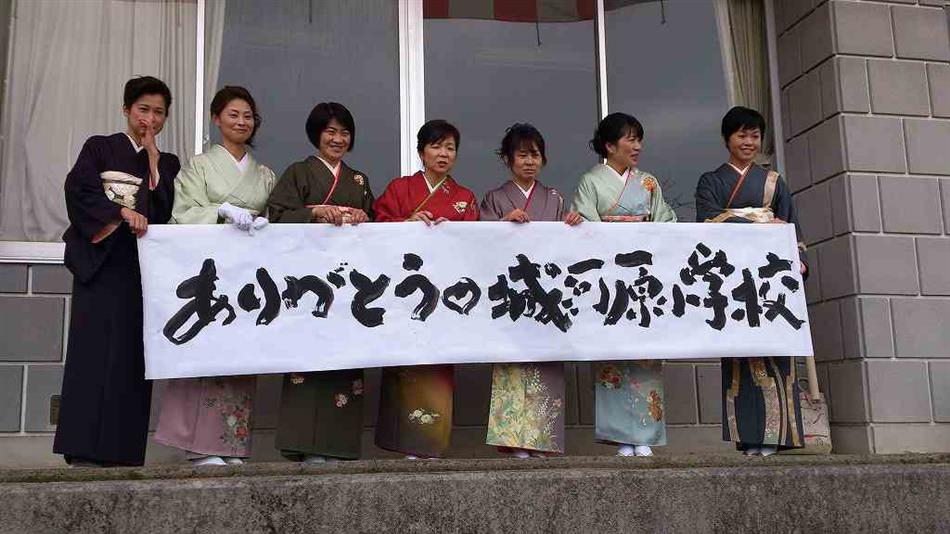 ありがとうの城河原小学校